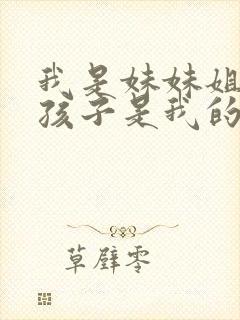 我是妹妹姐
孩子是我的
草壁零